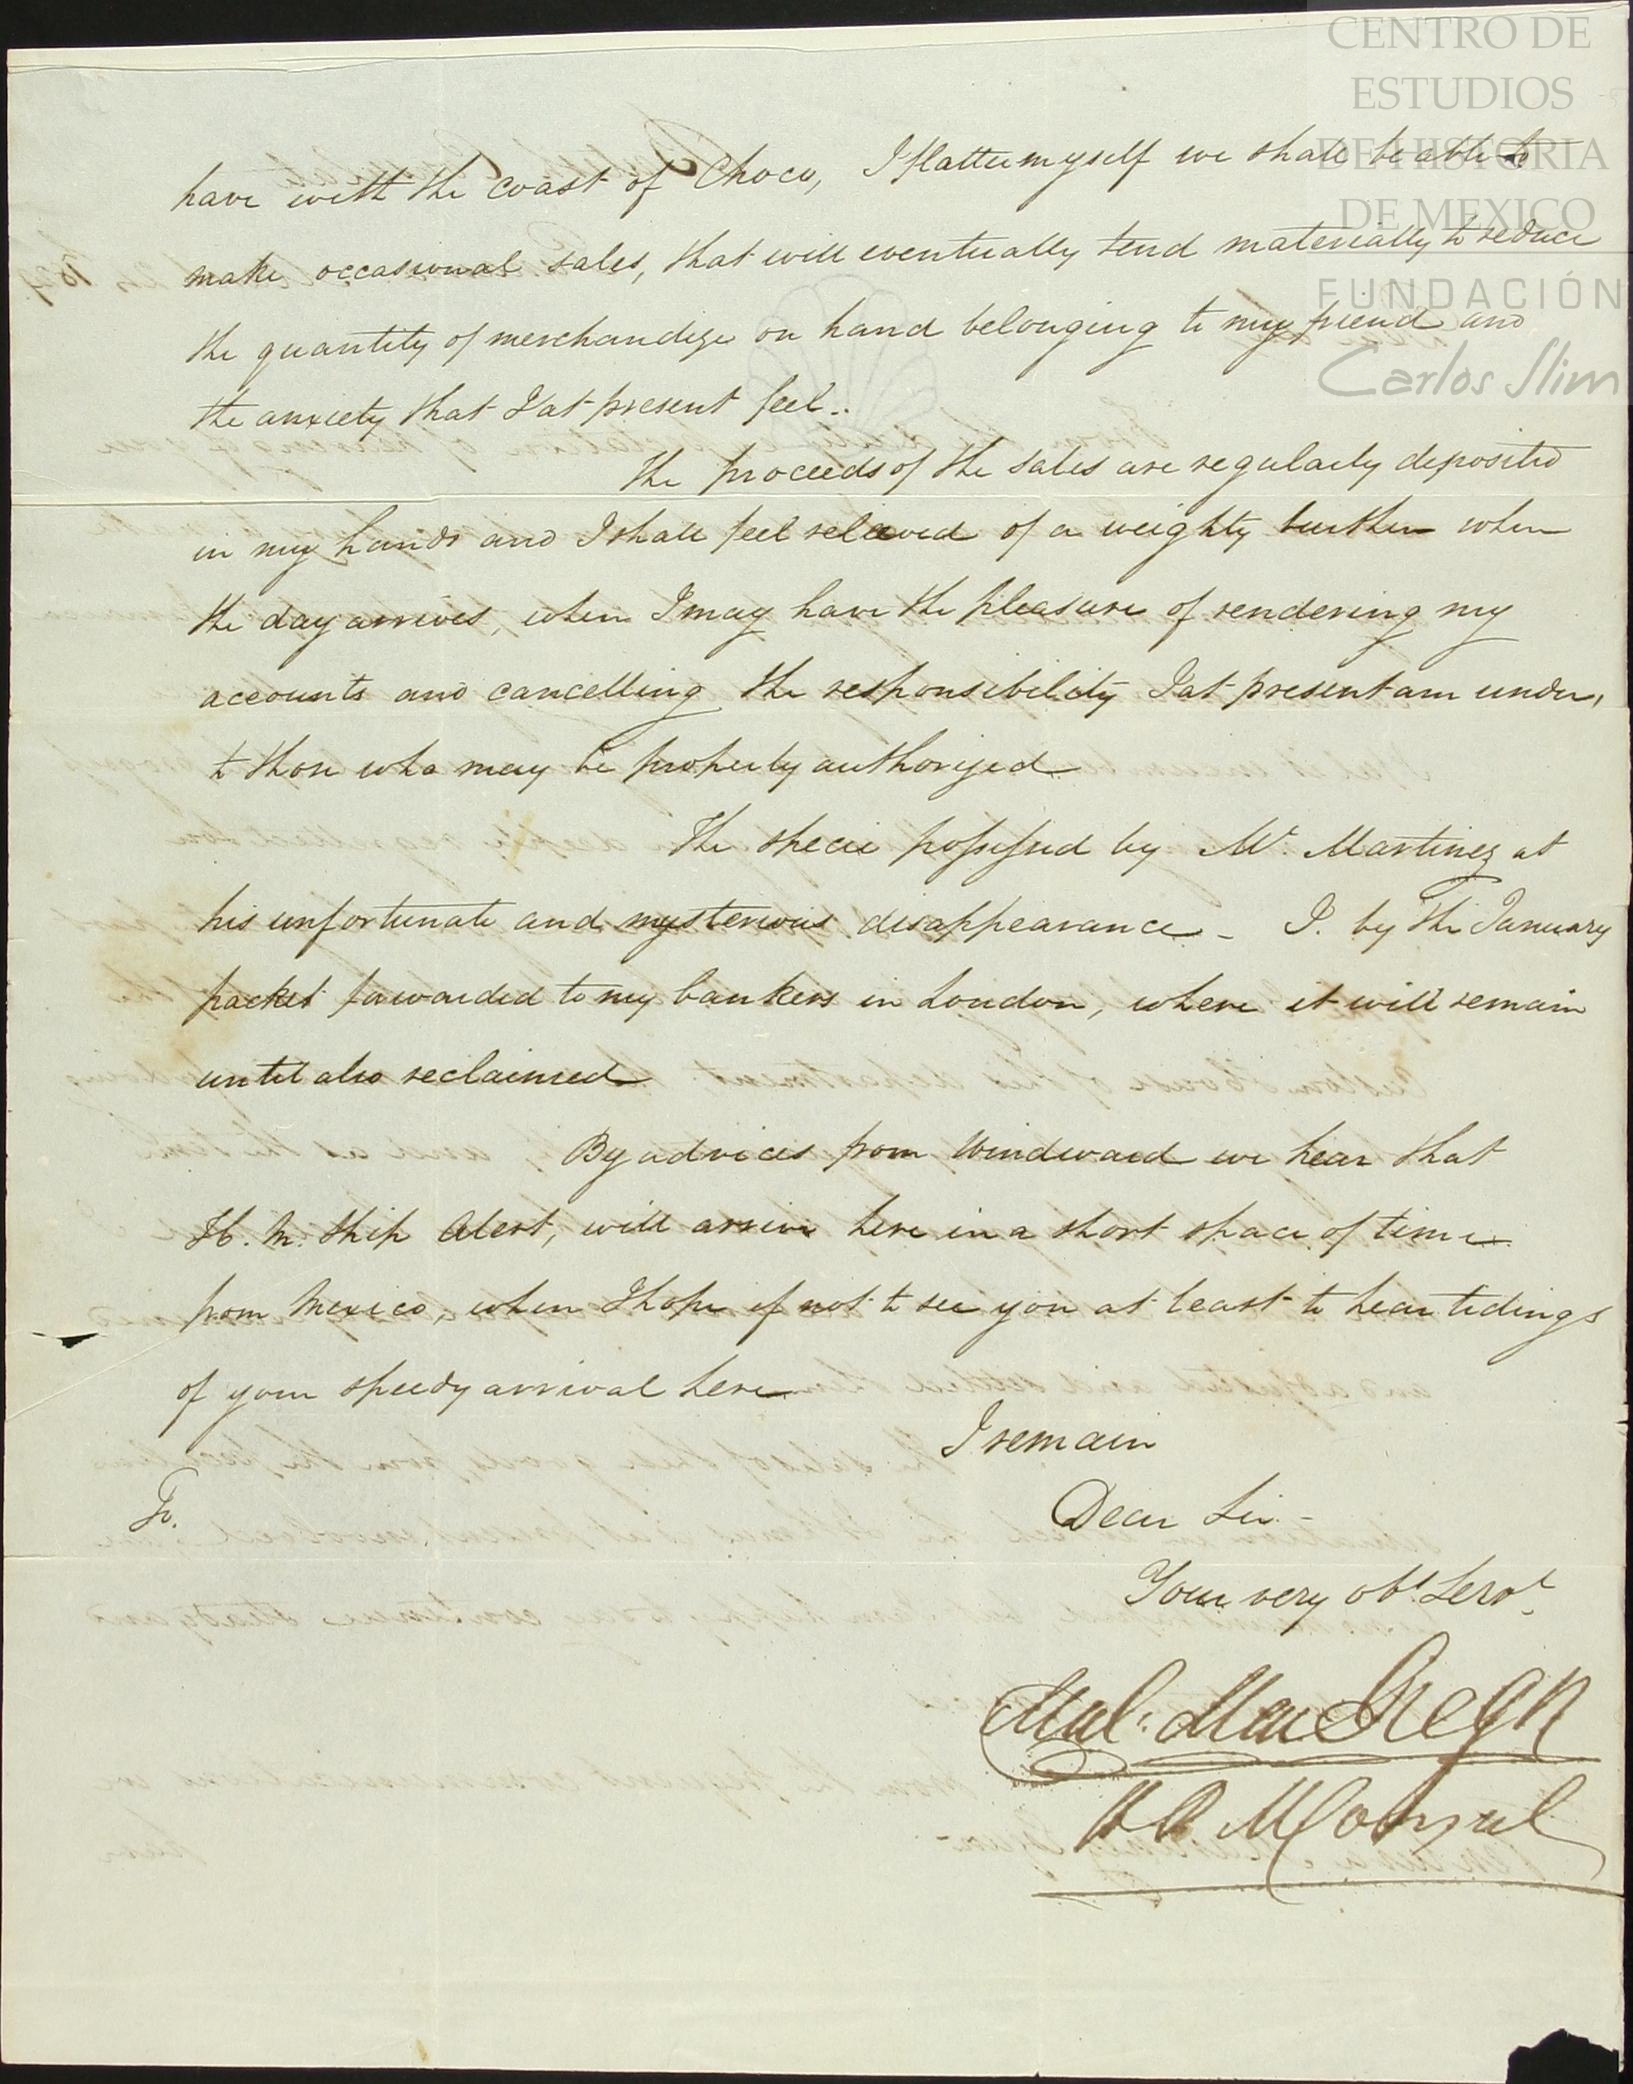 CENTRO DE
ESTUDIOS
DE HISTORIA
DE MEXICO
FUNDACIÓN
Carlos Slim
have with the coast of Choco, I flatter myself we shall be able to
make occasional sales, that will eventually tend materially to reduce
the quantity of merchandize on hand belonging to my friend and
the anxiety that I at present feel..
The proceeds of the sales are regularly deposited
in my hands and I shall feel relieved of a weighty burthen when
the day arrives, when I may have the pleasure of rendering my
accounts and cancelling the responsibility I at present am under,
to those who may be properly authorized
The specie possessed by Mr. Martinez at
his unfortunate and mysterious disappearance - I. by the January
packet forwarded to my bankers in London, where it will remain
until also reclaimed
By advices from Windward we hear that
H. M. Ship Alert, will arrive here in a short space of time
from Mexico, when I hope if not to see you at least to hear tidings
of your speedy arrival here
I remain
Dear Sir -
To.
Your very obt. Servt.
Mal. MacGregor
H B M Consul